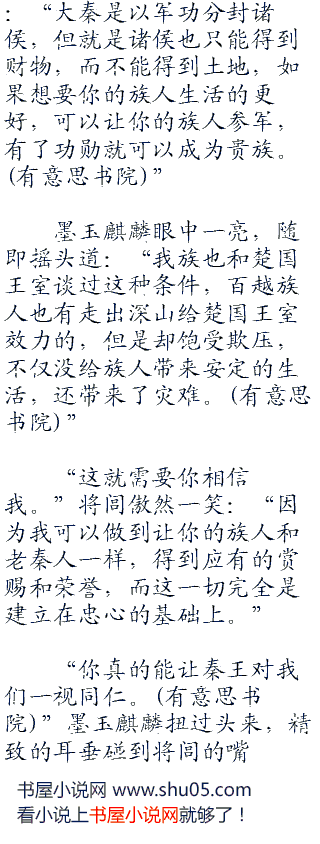 ：“大秦是以军功分封诸
侯，但就是诸侯也只能得到
财物，而不能得到土地，如
果想要你的族人生活的更
好，可以让你的族人参军，
有了功勋就可以成为贵族。
(有意思书院)”
墨玉麒麟眼中一亮，随
即摇头道：“我族也和楚国
王室谈过这种条件，百越族
人也有走出深山给楚国王室
效力的，但是却饱受欺压，
不仅没给族人带来安定的生
活，还带来了灾难。(有意思
书院)”
“这就需要你相信
我。”将闾傲然一笑：“因
为我可以做到让你的族人和
老秦人一样，得到应有的赏
赐和荣誉，而这一切完全是
建立在忠心的基础上。”
“你真的能让秦王对我
们一视同仁。(有意思书
院)”墨玉麒麟扭过头来，精
致的耳垂碰到将闾的嘴
书屋小说网 www.shu05.com
看小说上书屋小说网就够了！